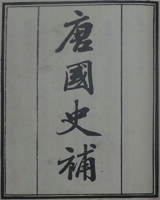 唐國史補